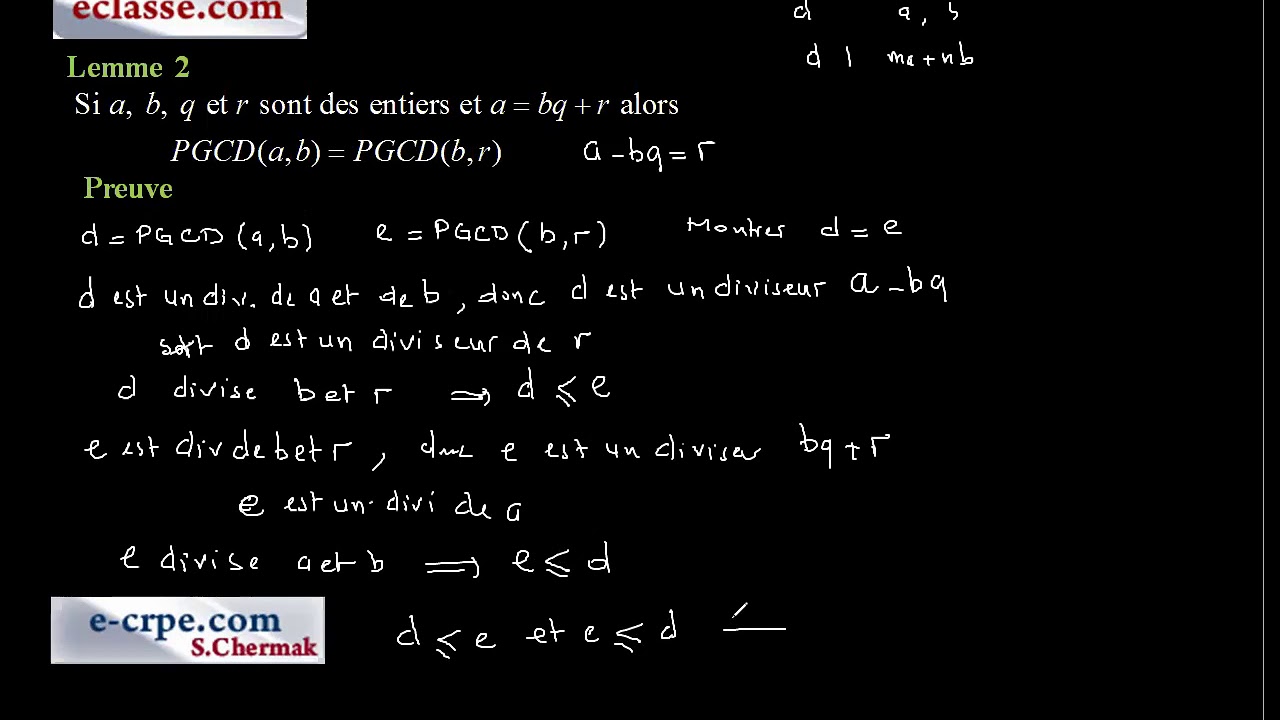 eclasse.com
d a, b
d | ma + nb
Lemme 2
Si a, b, q et r sont des entiers et a = bq + r alors
PGCD(a,b) = PGCD(b,r) a - bq = r
Preuve
d = PGCD (a,b) e = PGCD(b,r) Montrer d = e
d est un div. de a et de b, donc d est un diviseur a - bq
soit d est un diviseur de r
d divise b et r ⟹ d ⩽ e
e est div de b et r, donc e est un diviseur bq + r
e est un divi de a
e divise a et b ⟹ e ⩽ d
d ⩽ e et e ⩽ d
e-crpe.com
S.Chermak